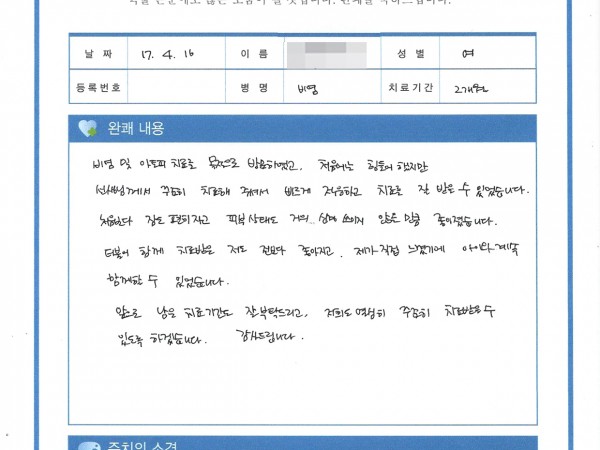 날 짜 17. 4. 16 이 름 성 별 여
등록번호 병 명 비염 치료기간 2개월
완쾌 내용
비염 및 아토피 치료를 목적으로 방문하였고, 처음에는 힘들어 했지만
선생님께서 꾸준히 치료해 주셔서 빠르게 적응하고 치료를 잘 받을 수 있었습니다.
처음보다 잠도 편히자고 피부상태도 거의.. 신경 쓰이지 않을 만큼 좋아졌습니다.
더불어 함께 치료받은 저도 전보다 좋아지고, 제가 직접 느꼈기에 아이와 계속
함께할 수 있었습니다.
앞으로 남은 치료기간도 잘 부탁드리고, 저희도 열심히 꾸준히 치료받을 수
있도록 하겠습니다. 감사드립니다.
주치의 소견